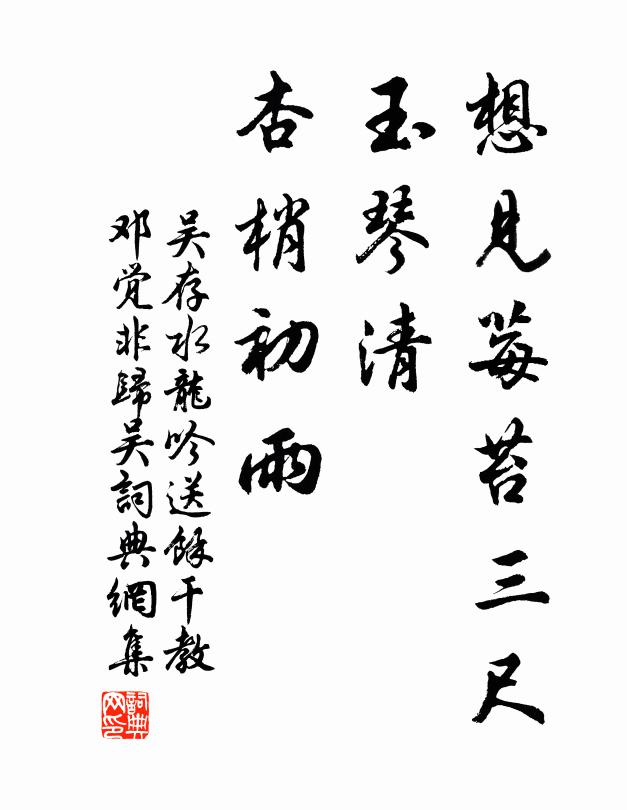 想見莓苔三尺
玉琴清
杏梢初雨
吴存水龍吟送餘干教
邓觉非歸吴詞典網集
詞典网印